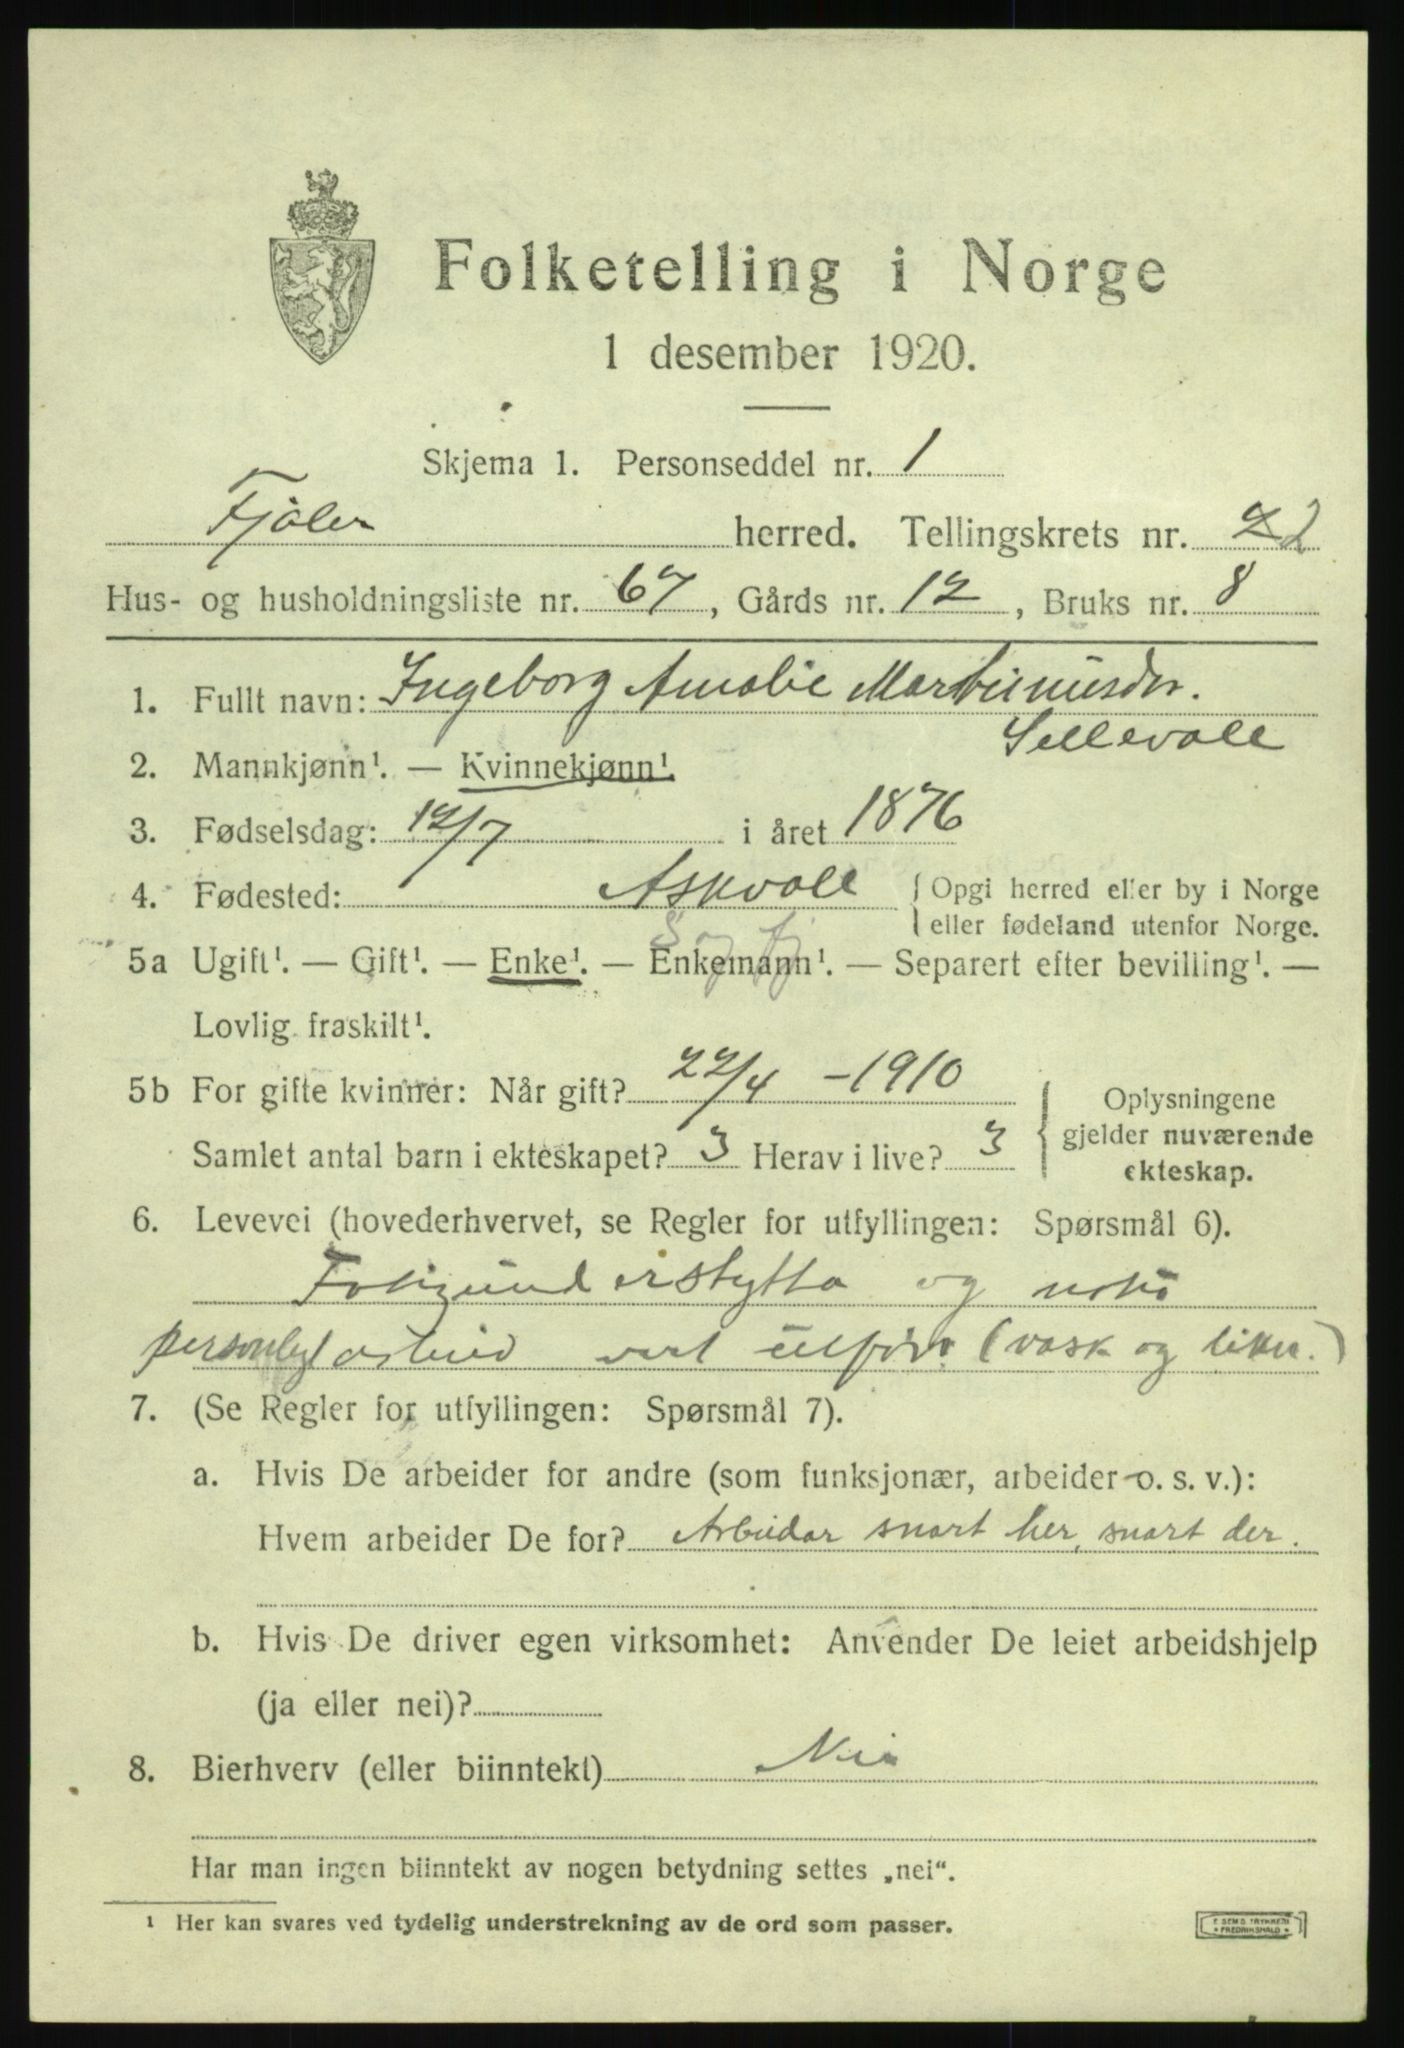 Folketelling i Norge
1 desember 1920.
Skjema 1. Personseddel nr. 1
Fjaler herred. Tellingskrets nr. 2
Hus- og husholdningsliste nr. 67, Gårds nr. 12, Bruks nr. 8
1. Fullt navn: Ingeborg Amalie Martinusdtr.
Sellevoll
2. Mannkjønn¹. — Kvinnekjønn¹.
3. Fødselsdag: 12/7 i året 1876
4. Fødested: Askvoll { Opgi herred eller by i Norge
eller fødeland utenfor Norge.
S og Fj
5a Ugift¹. — Gift¹. — Enke¹. — Enkemann¹. — Separert efter bevilling¹. —
Lovlig fraskilt¹.
5b For gifte kvinner: Når gift? 22/4 - 1910
Samlet antal barn i ekteskapet? 3 Herav i live? 3
Oplysningene
gjelder nuværende
ekteskap.
6. Levevei (hovederhvervet, se Regler for utfyllingen: Spørsmål 6).
understytta og noko
personlegt arbeid vert utført (vask og likn.)
7. (Se Regler for utfyllingen: Spørsmål 7).
a. Hvis De arbeider for andre (som funksjonær, arbeider o. s. v.):
Hvem arbeider De for? Arbeidar snart her, snart der.
b. Hvis De driver egen virksomhet: Anvender De leiet arbeidshjelp
(ja eller nei)?
8. Bierhverv (eller biinntekt) Nei
Har man ingen biinntekt av nogen betydning settes „nei“.
¹ Her kan svares ved tydelig understrekning av de ord som passer.
E. SEMS TRYKKERI
FREDRIKSHALD